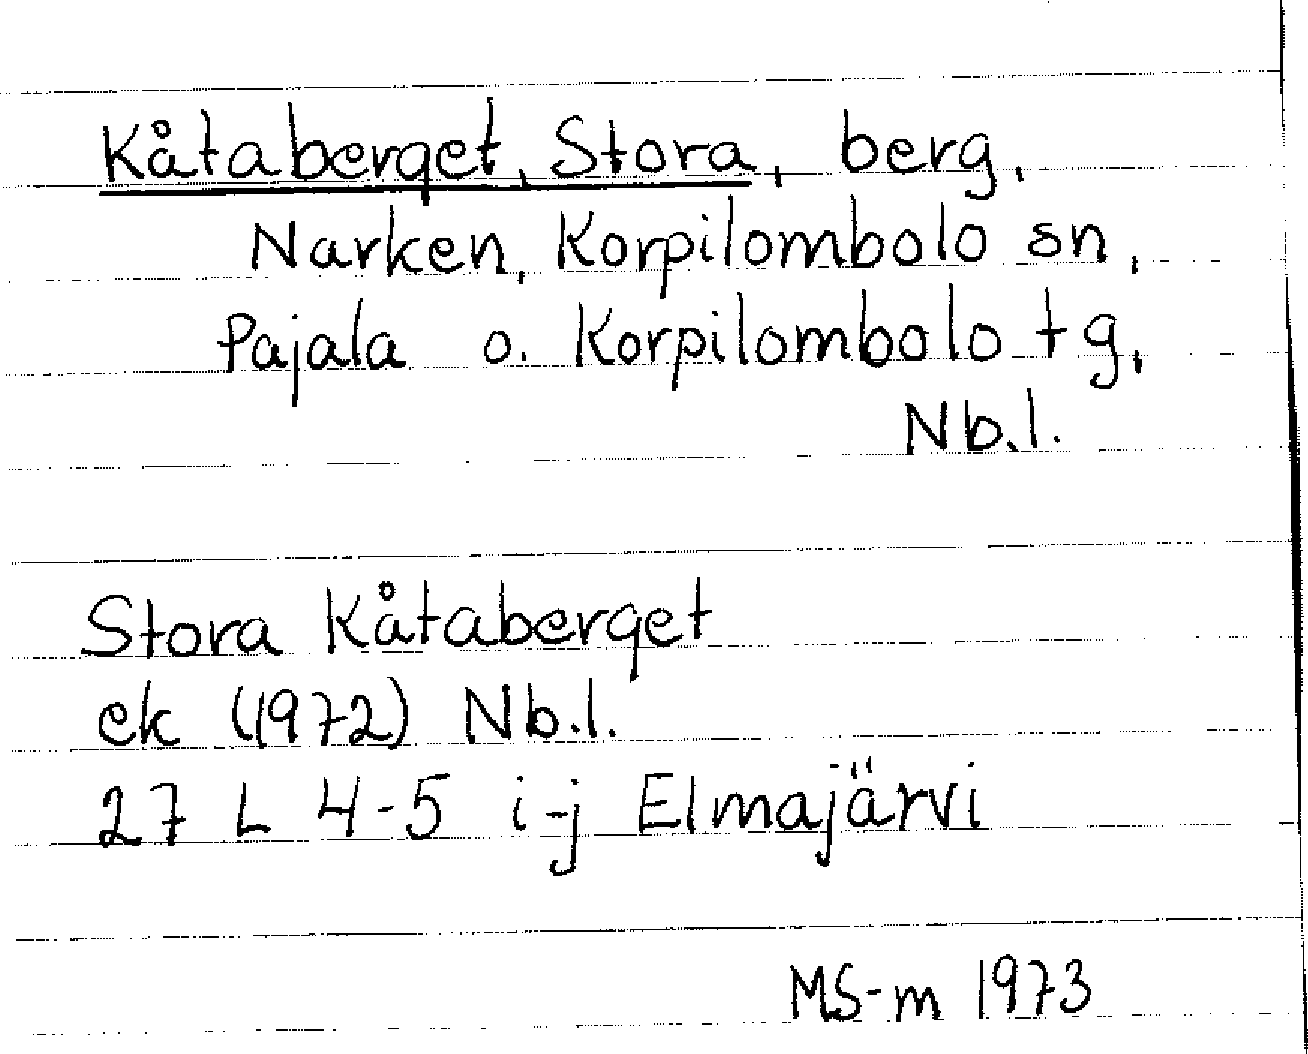 Kåtaberget, Stora, berg,
Narken, Korpilombolo sn,
Pajala o. Korpilombolo tg,
Nb.l.
Stora Kåtaberget
ek (1972) Nb.l.
27 L 4-5 i-j Elmajärvi
MS-m 1973